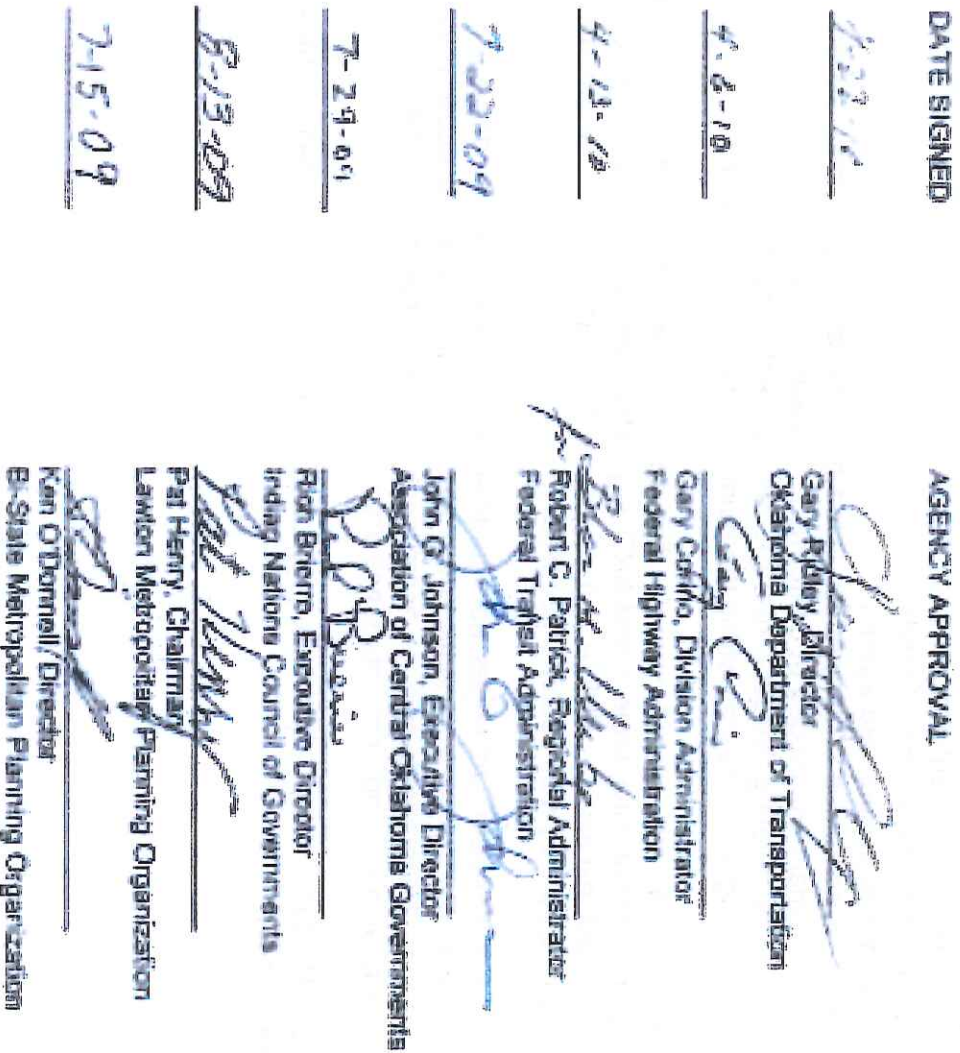 DATE SIGNED
AGENCY APPROVAL
Gary Ridley, Director
Oklahoma Department of Transportation
4-8-10
Gary Corino, Division Administrator
Federal Highway Administration
4-13-10
Robert C. Patrick, Regional Administrator
Federal Transit Administration
7-22-09
John G. Johnson, Executive Director
Association of Central Oklahoma Governments
7-29-09
Rich Brierre, Executive Director
Indian Nations Council of Governments
8-13-09
Pat Henry
Pat Henry, Chairman
Lawton Metropolitan Planning Organization
7-15-09
Ken O'Donnell/Director
Bi-State Metropolitan Planning Organization